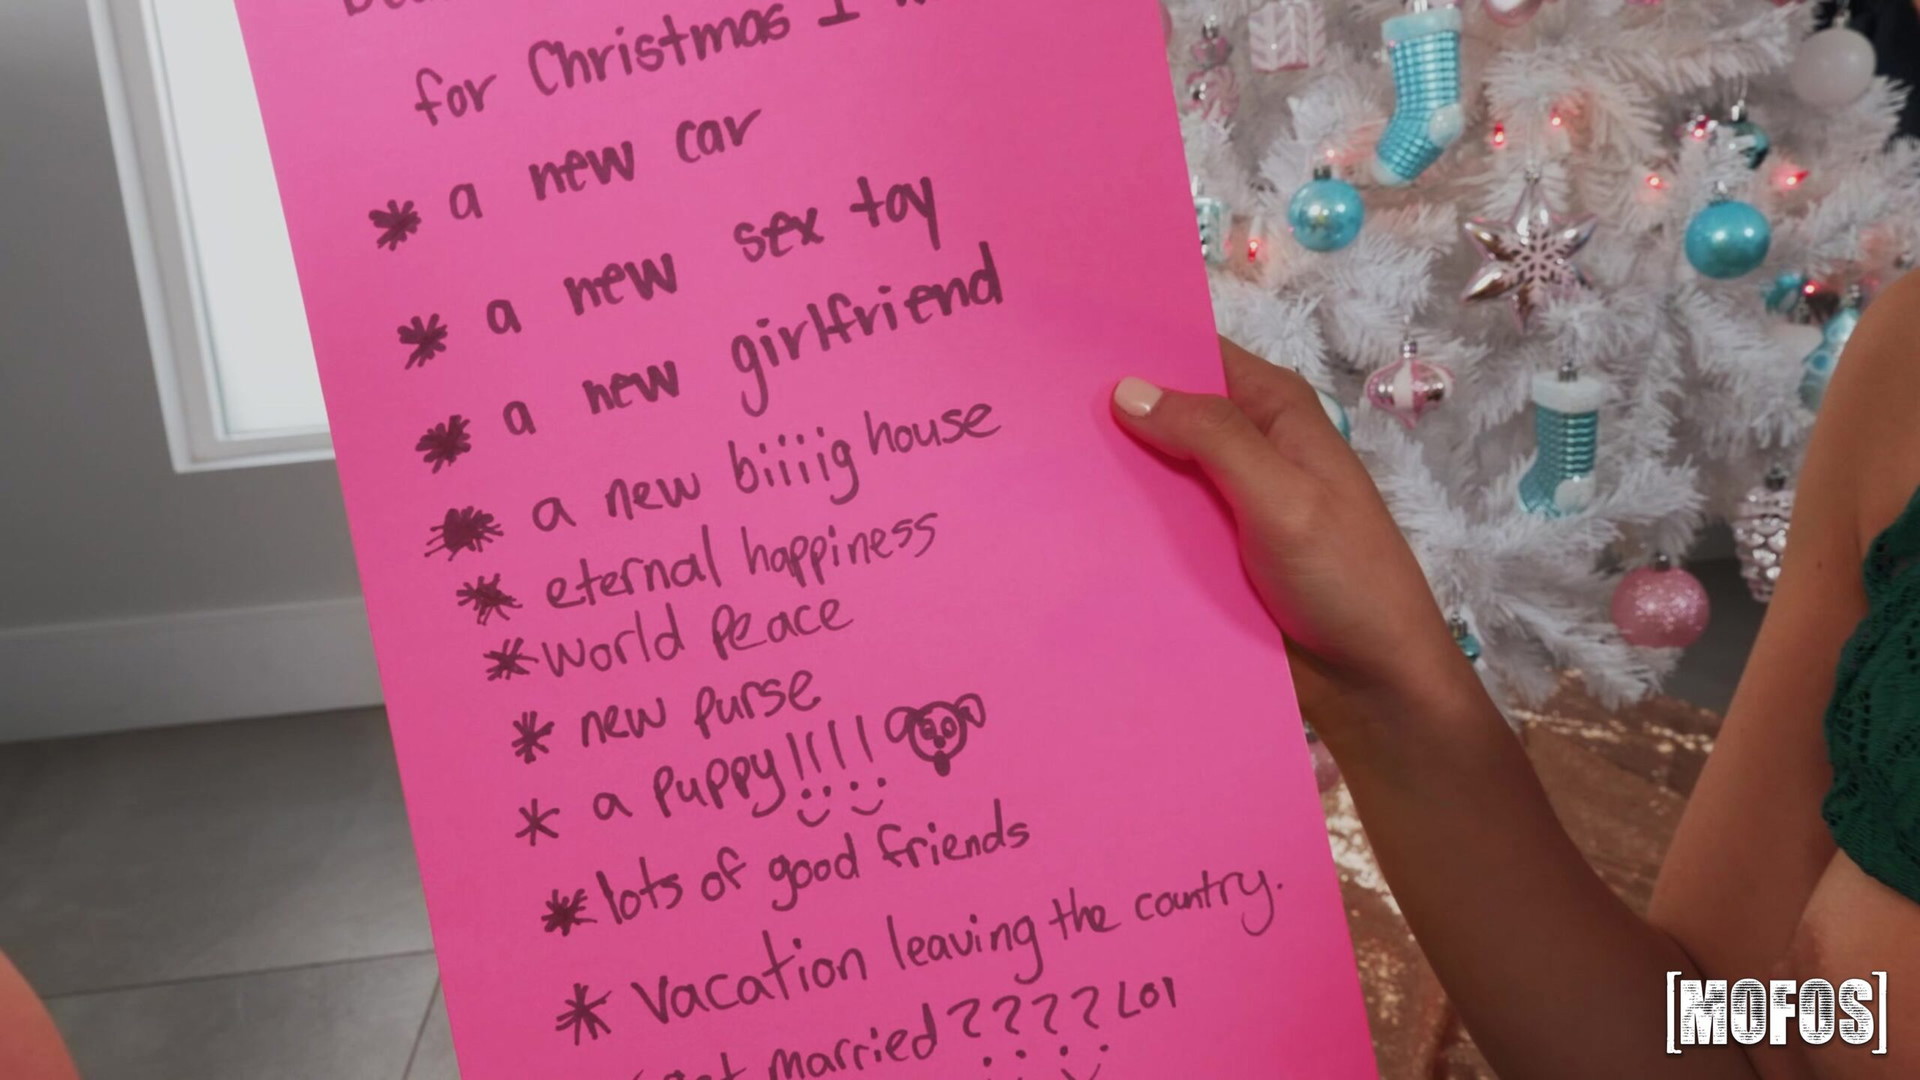 for Christmas I
* a new car
* a new sex toy
* a new girlfriend
* a new biiiig house
* eternal happiness
* World Peace
* new purse
* a puppy!!!!
* lots of good friends
* Vacation leaving the country.
married???? LOl
[MOFOS]